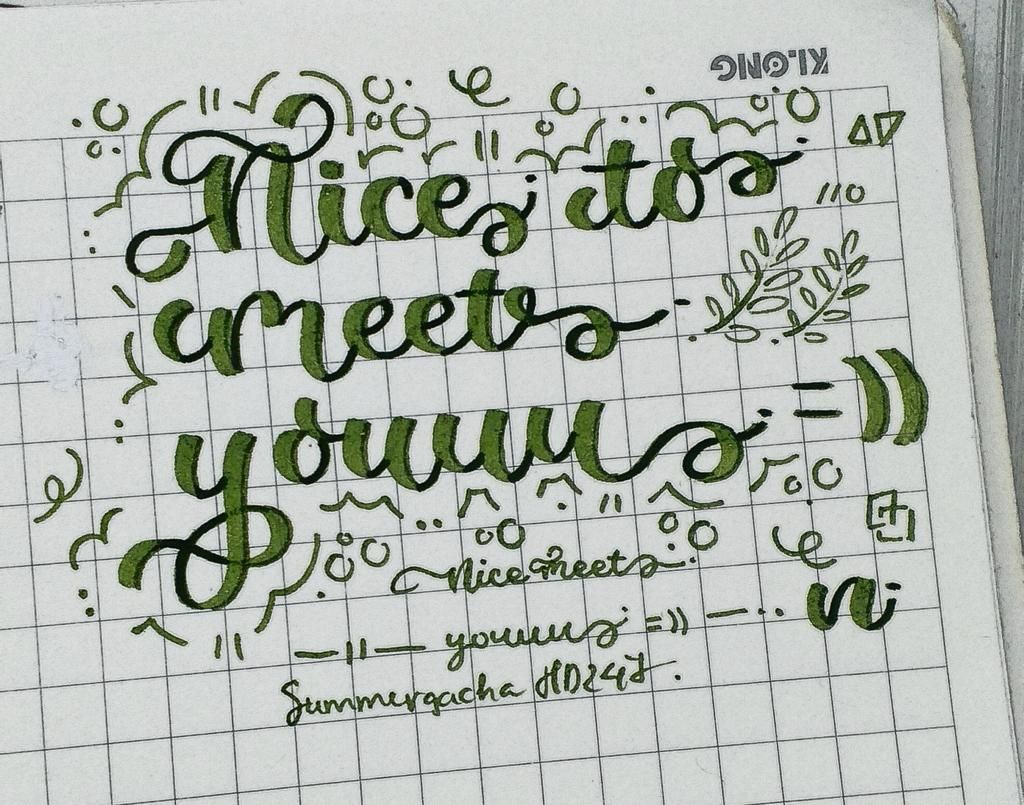 KLONG
Nice to
meet
youuu =))
Nice meet
n
youuu =))
Summergacha HD247.